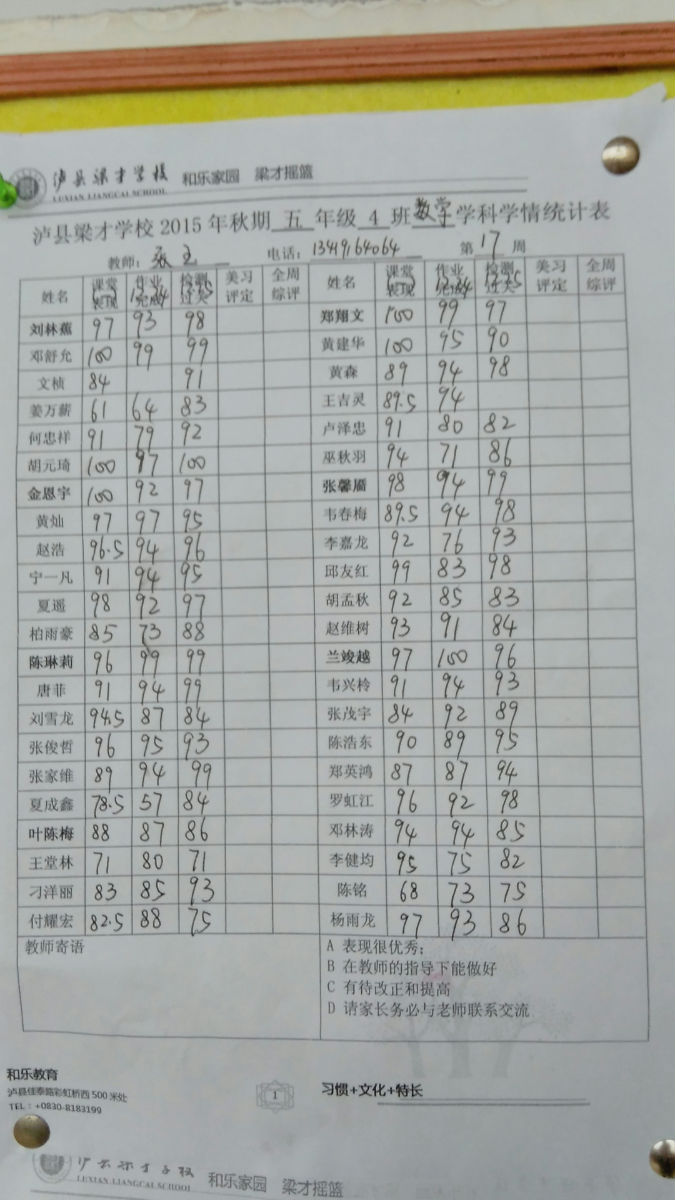 泸县梁才学校 和乐家园 梁才摇篮
LUXIAN LIANGCAI SCHOOL
泸县梁才学校2015年秋期 五 年级 4 班 数学 学科学情统计表
教师: 电话: 13419164064 第 17 周
姓名 课堂表现 作业完成 检测过关 美习评定 全周综评 姓名 课堂表现 作业完成 检测过关 美习评定 全周综评
刘林蕉 97 93 98 郑翔文 100 99 97
邓舒允 100 99 99 黄建华 100 95 90
文桢 84 91 黄森 89 94 98
姜万薪 61 64 83 王吉灵 89.5 94
何忠祥 91 79 92 卢泽忠 91 80 82
胡元琦 100 97 100 巫秋羽 94 71 86
金恩宇 100 92 97 张馨 98 94 99
黄灿 97 97 95 韦春梅 89.5 94 98
赵浩 96.5 94 96 李嘉龙 92 76 93
宁一凡 91 94 95 邱友红 99 83 98
夏遥 98 92 97 胡孟秋 92 85 83
柏雨豪 85 73 88 赵维树 93 91 84
陈琳莉 96 99 99 兰竣越 97 100 96
唐菲 91 94 99 韦兴柃 91 94 93
刘雪龙 94.5 87 84 张茂宇 84 92 89
张俊哲 96 95 93 陈浩东 90 89 95
张家维 89 94 99 郑英鸿 87 87 94
夏成鑫 78.5 57 84 罗虹江 96 92 98
叶陈梅 88 87 86 邓林涛 94 94 85
王堂林 71 80 71 李健均 95 75 82
刁洋丽 83 85 93 陈铭 68 73 75
付耀宏 82.5 88 75 杨雨龙 97 93 86
教师寄语
A 表现很优秀;
B 在教师的指导下能做好
C 有待改正和提高
D 请家长务必与老师联系交流
和乐教育
泸县佳泰路彩虹桥西500米处
TEL：+0830-8183199
1
习惯+文化+特长
泸县梁才学校 和乐家园 梁才摇篮
LUXIAN LIANGCAI SCHOOL